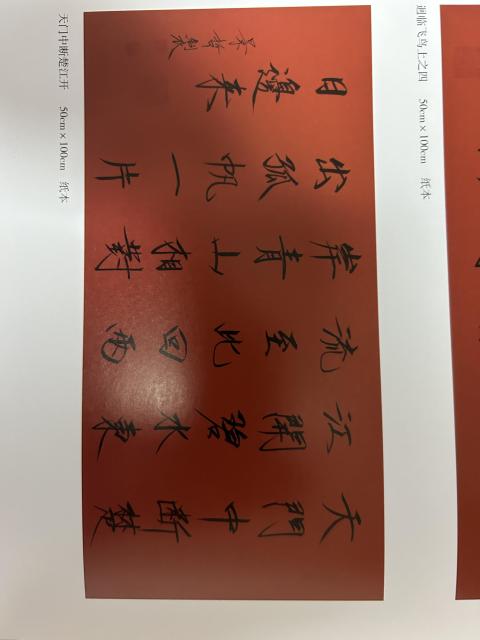 天門中斷楚
江開碧水東
流至此回兩
岸青山相對
出孤帆一片
日邊來
天门中断楚江开 50cm×100cm 纸本
迥临飞鸟上之四 50cm×100cm 纸本